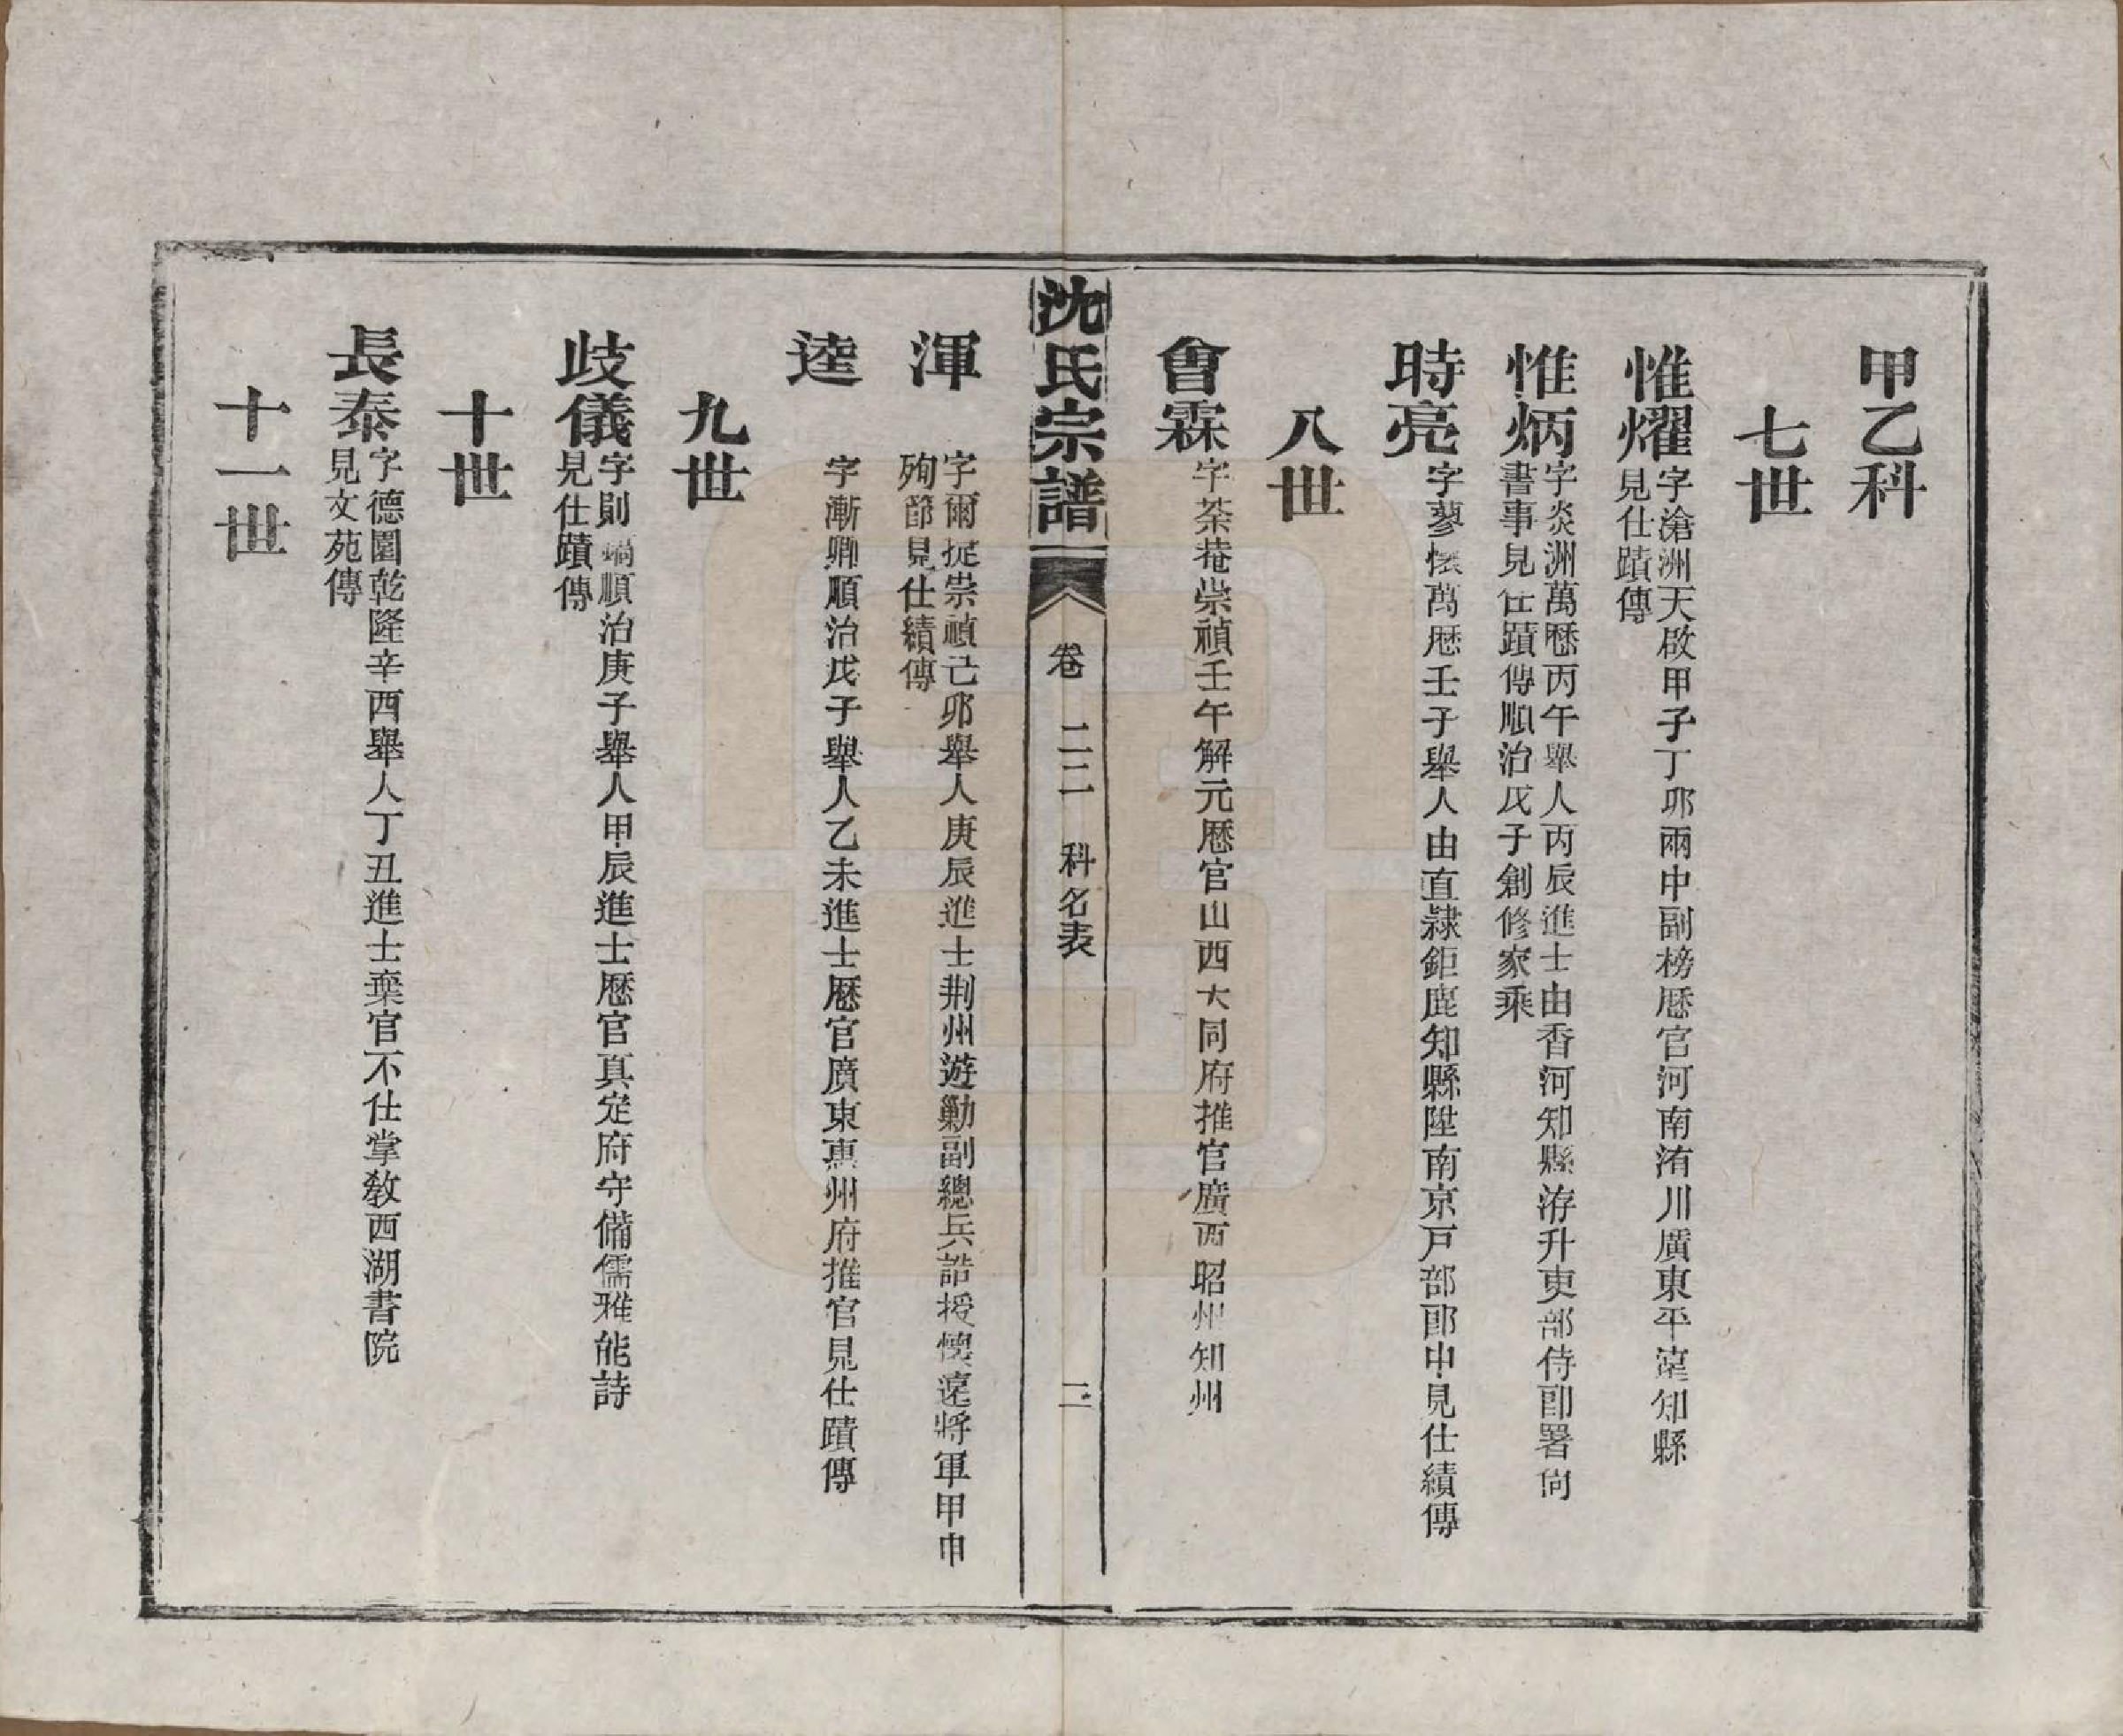 甲乙科
七世
惟燿
字滄洲天啟甲子丁卯兩中副榜歷官河南洧川廣東平遠知縣
見仕蹟傳
惟炳
字炎洲萬歷丙午舉人丙辰進士由香河知縣洊升吏部侍郎署尙
書事見仕蹟傳順治戊子創修家乘
時亮
字蓼懷萬歷壬子舉人由直隸鉅鹿知縣陞南京戸部郎中見仕績傳
八世
會霖
字荼菴崇禎壬午解元歷官山西大同府推官廣西昭州知州
沈氏宗譜
卷二二
科名表
二
渾
字爾捉崇禎己卯舉人庚辰進士荆州遊勦副總兵誥授懷遠將軍甲申
殉節見仕績傳
逵
字漸卿順治戊子舉人乙未進士歷官廣東惠州府推官見仕蹟傳
九世
歧儀
字則順治庚子舉人甲辰進士歷官真定府守備儒雅能詩
見仕蹟傳
十世
長泰
字德園乾隆辛酉舉人丁丑進士棄官不仕掌教西湖書院
見文苑傳
十一世